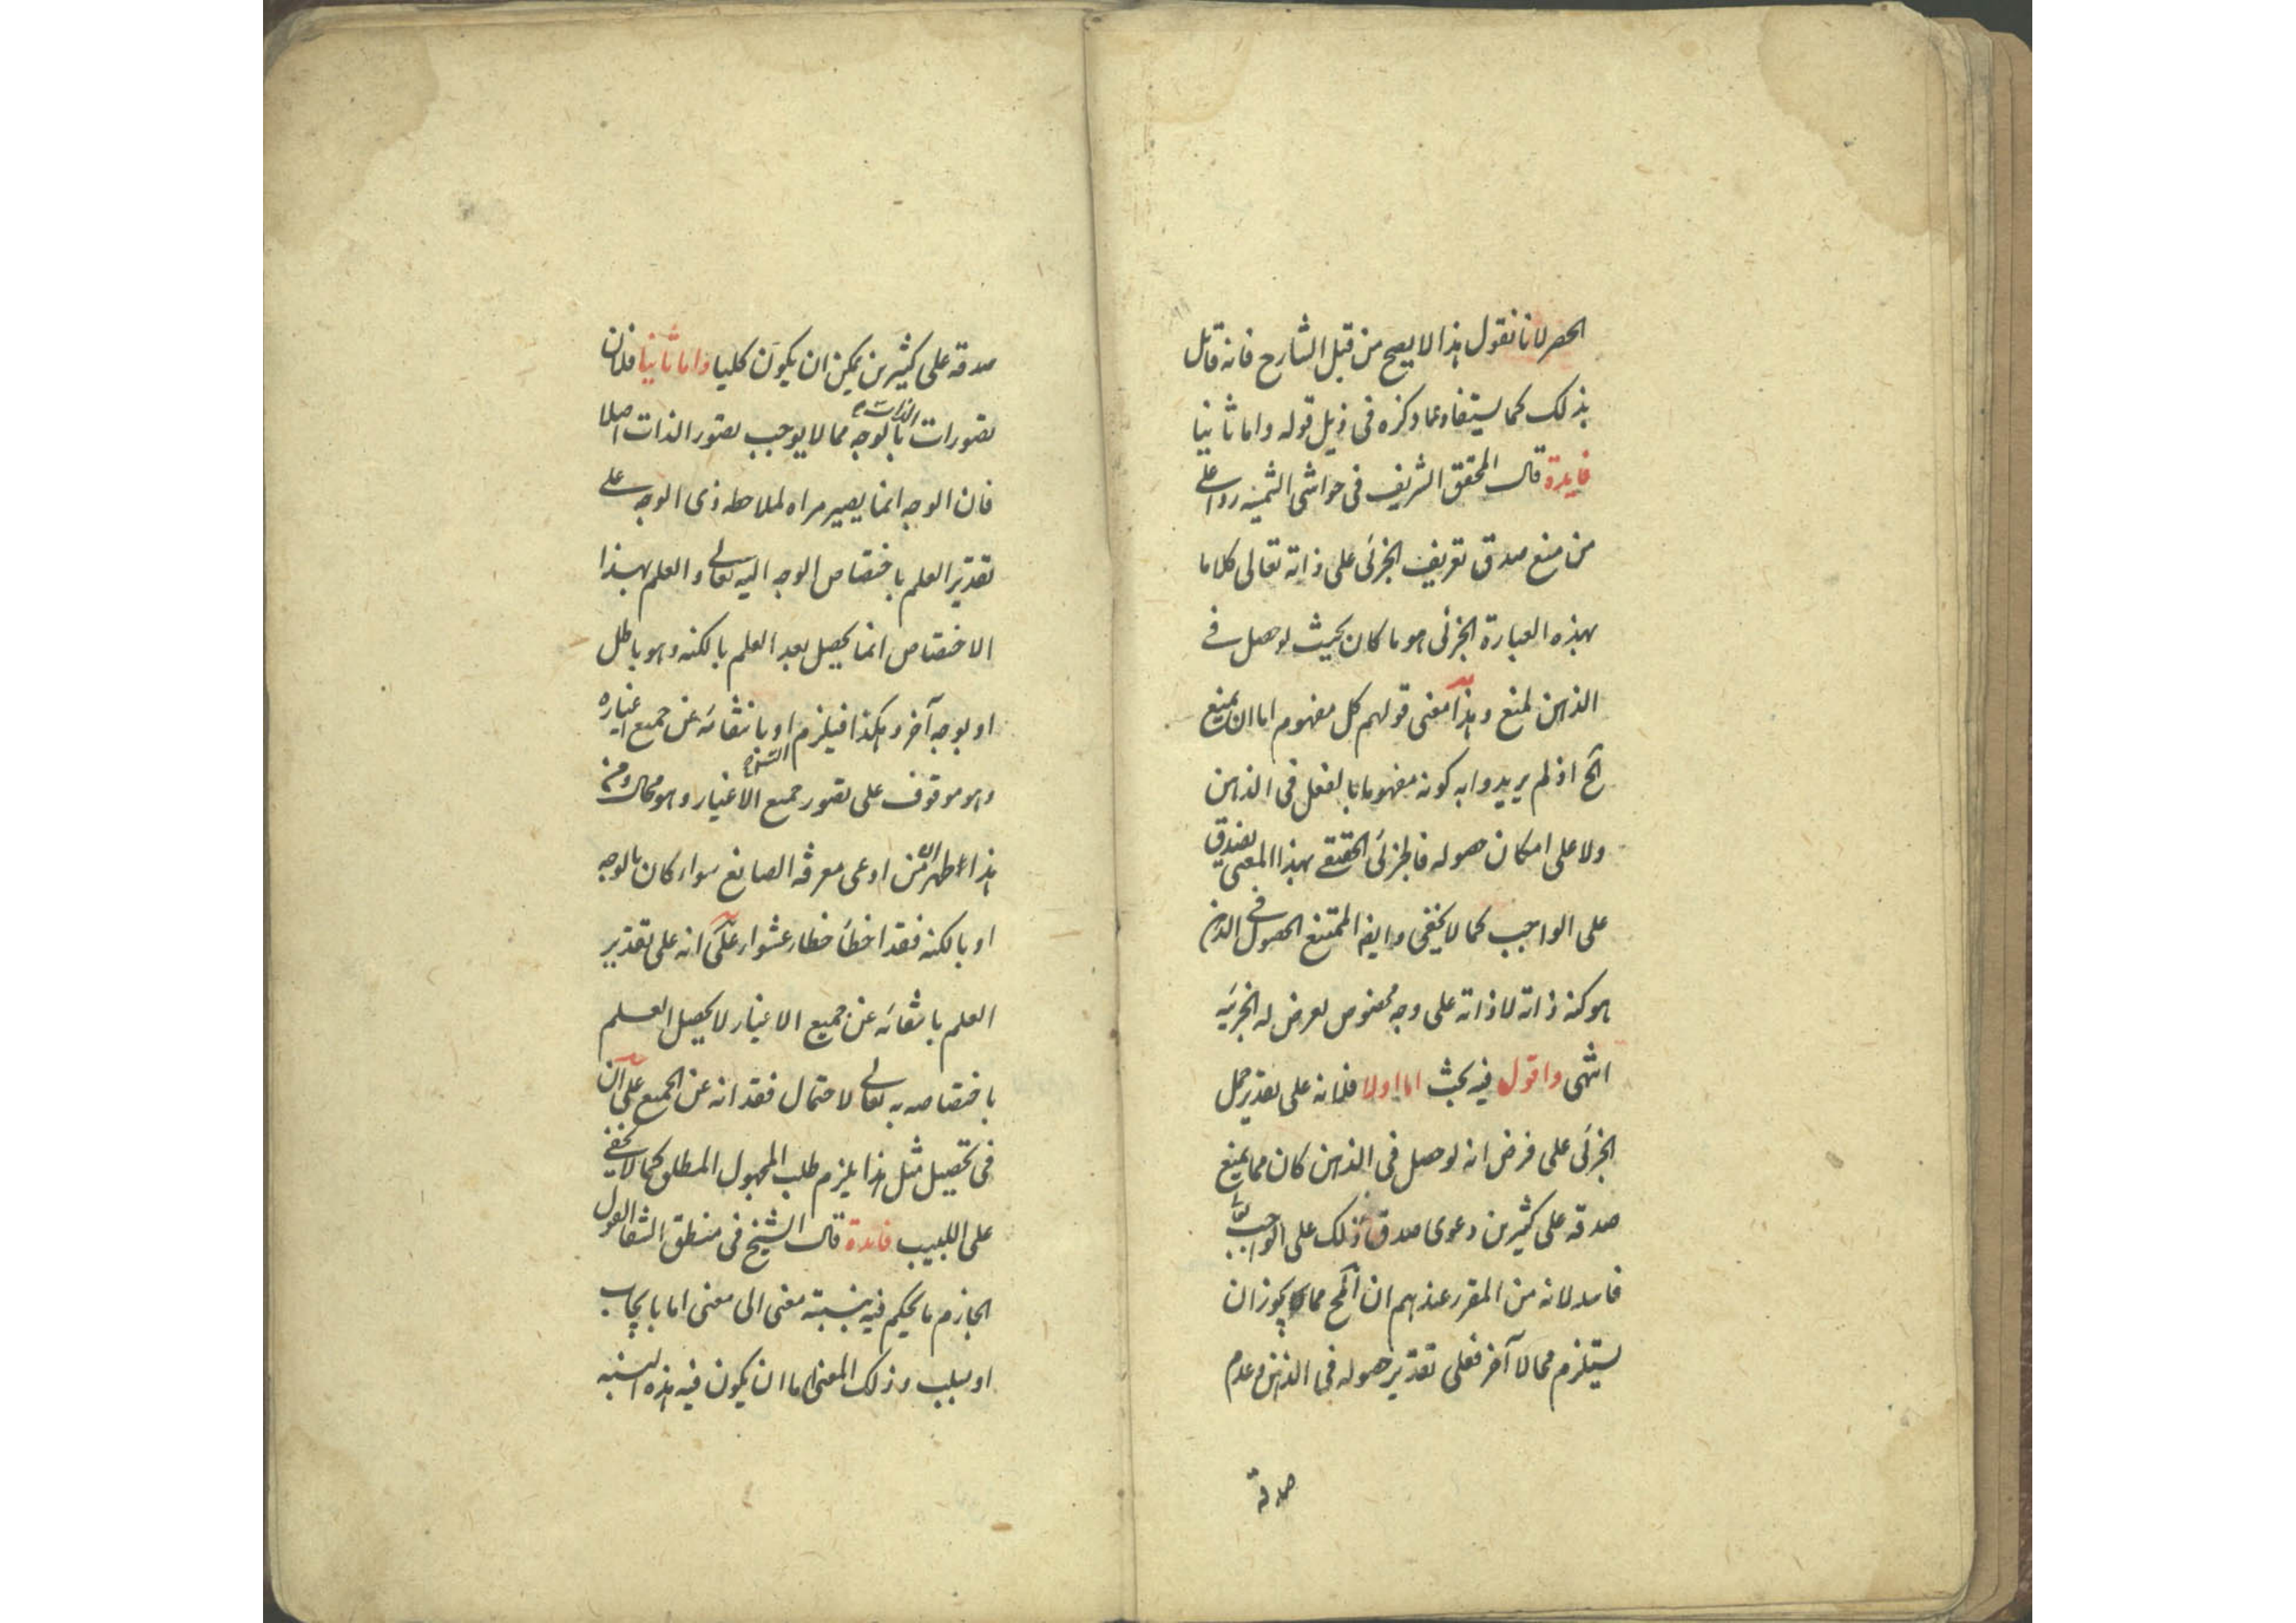 الحصر لانا نقول هذا لا يصح من قبل الشارح فانه قائل
بذلك كما يستفاد مما ذكره فى ذيل قوله واما ثانيا
فايدة قال المحقق الشريف فى حواشى الشمسيه ردا على
من منع صدق تعريف الجزئى على ذاته تعالى كلاما
بهذه العبارة الجزئى هو ما كان بحيث لو حصل فى
الذهن لمنع وهذا معنى قولهم كل مفهوم اما ان يمنع
الخ اذ لم يريدوا به كونه مفهوما بالفعل فى الذهن
ولا على امكان حصوله فالجزئى الحقيقى بهذا المعنى يصدق
على الواجب كما لا يخفى وايضا الممتنع الحصول فى الذهن
هو كنه ذاته لا ذاته على وجه مخصوص يعرض له الجزئيه
انتهى واقول فيه بحث اما اولا فلانه على تقدير حمل
الجزئى على فرض انه لو حصل فى الذهن كان مما يمنع
صدقه على كثيرين دعوى صدق ذلك على الواجب تعالى
فاسد لانه من المقرر عندهم ان المح مما يجوز ان
يستلزم محالا آخر فعلى تقدير حصوله فى الذهن وعدم
صدقه
صدقه على كثيرين يمكن ان يكون كليا واما ثانيا فلان
تصورات الذات بالوجه مما لا يوجب تصور الذات اصلا
فان الوجه انما يصير مراه لملاحظه ذى الوجه على
تقدير العلم باختصاص الوجه اليه تعالى والعلم بهذا
الاختصاص انما يحصل بعد العلم بالكنه وهو باطل
او بوجه آخر وهكذا فيلزم التس او بانتفائه عن جميع اغياره
وهو موقوف على تصور جميع الاغيار وهو محال ومن
هذا اظهر ان من ادعى معرفة الصانع سواء كان بالوجه
او بالكنه فقد اخطأ خطاء عشواء على انه على تقدير
العلم بانتفائه عن جميع الاغيار لا يحصل العلم
باختصاصه به تعالى لاحتمال فقدانه عن الجميع على ان
فى تحصيل مثل هذا يلزم طلب المجهول المطلق كما لا يخفى
على اللبيب فايدة قال الشيخ فى منطق الشفا القول
الجازم ما يحكم فيه بنسبته معنى الى معنى اما بايجاب
او بسلب وذلك المعنى اما ان يكون فيه هذه النسبه